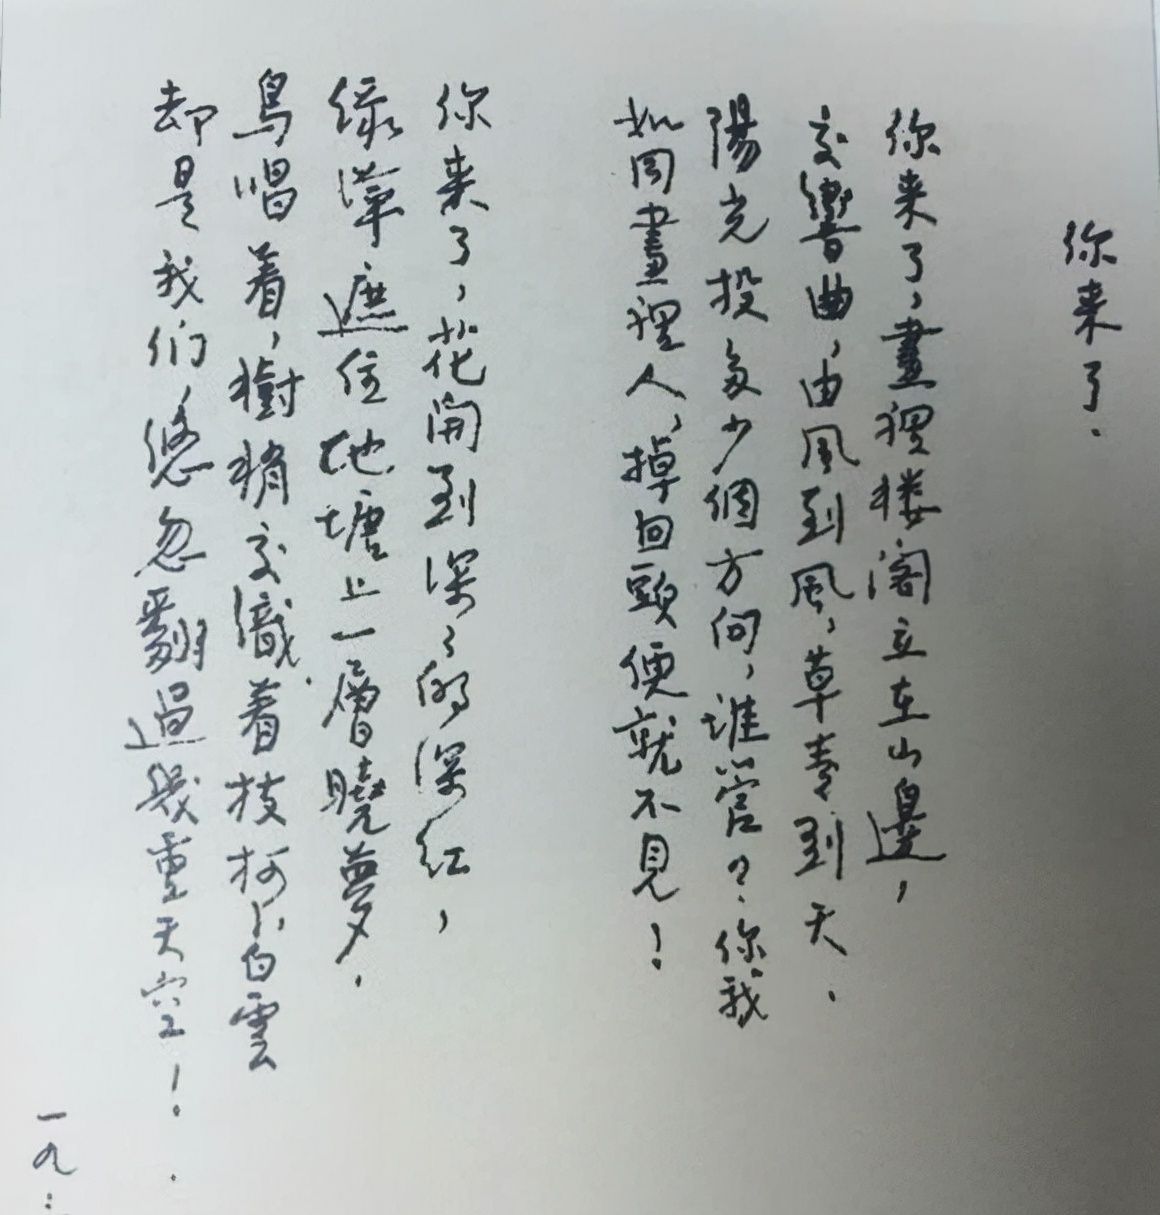 你来了.
你来了，畫裡楼阁立在山邊，
交響曲，由風到風，草青到天.
陽光投多少個方向，誰管？你我
如同畫裡人，掉回頭便就不見！
你来了，花開到深々的深红，
绿萍遮住地塘上一層曉夢，
鳥唱着，樹梢交織着枝柯，白雲
却是我们，悠忽翻過幾重天空！
一九